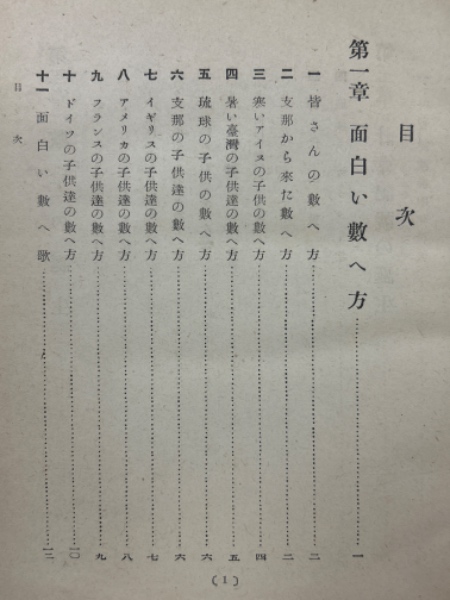 目次
第一章 面白い數へ方 一
一 皆さんの數へ方 二
二 支那から來た數へ方 二
三 寒いアイヌの子供の數へ方 四
四 暑い臺灣の子供達の數へ方 五
五 琉球の子供の數へ方 六
六 支那の子供達の數へ方 六
七 イギリスの子供達の數へ方 七
八 アメリカの子供達の數へ方 八
九 フランスの子供達の數へ方 九
十 ドイツの子供達の數へ方 一〇
十一 面白い數へ歌 一三
目次
(1)